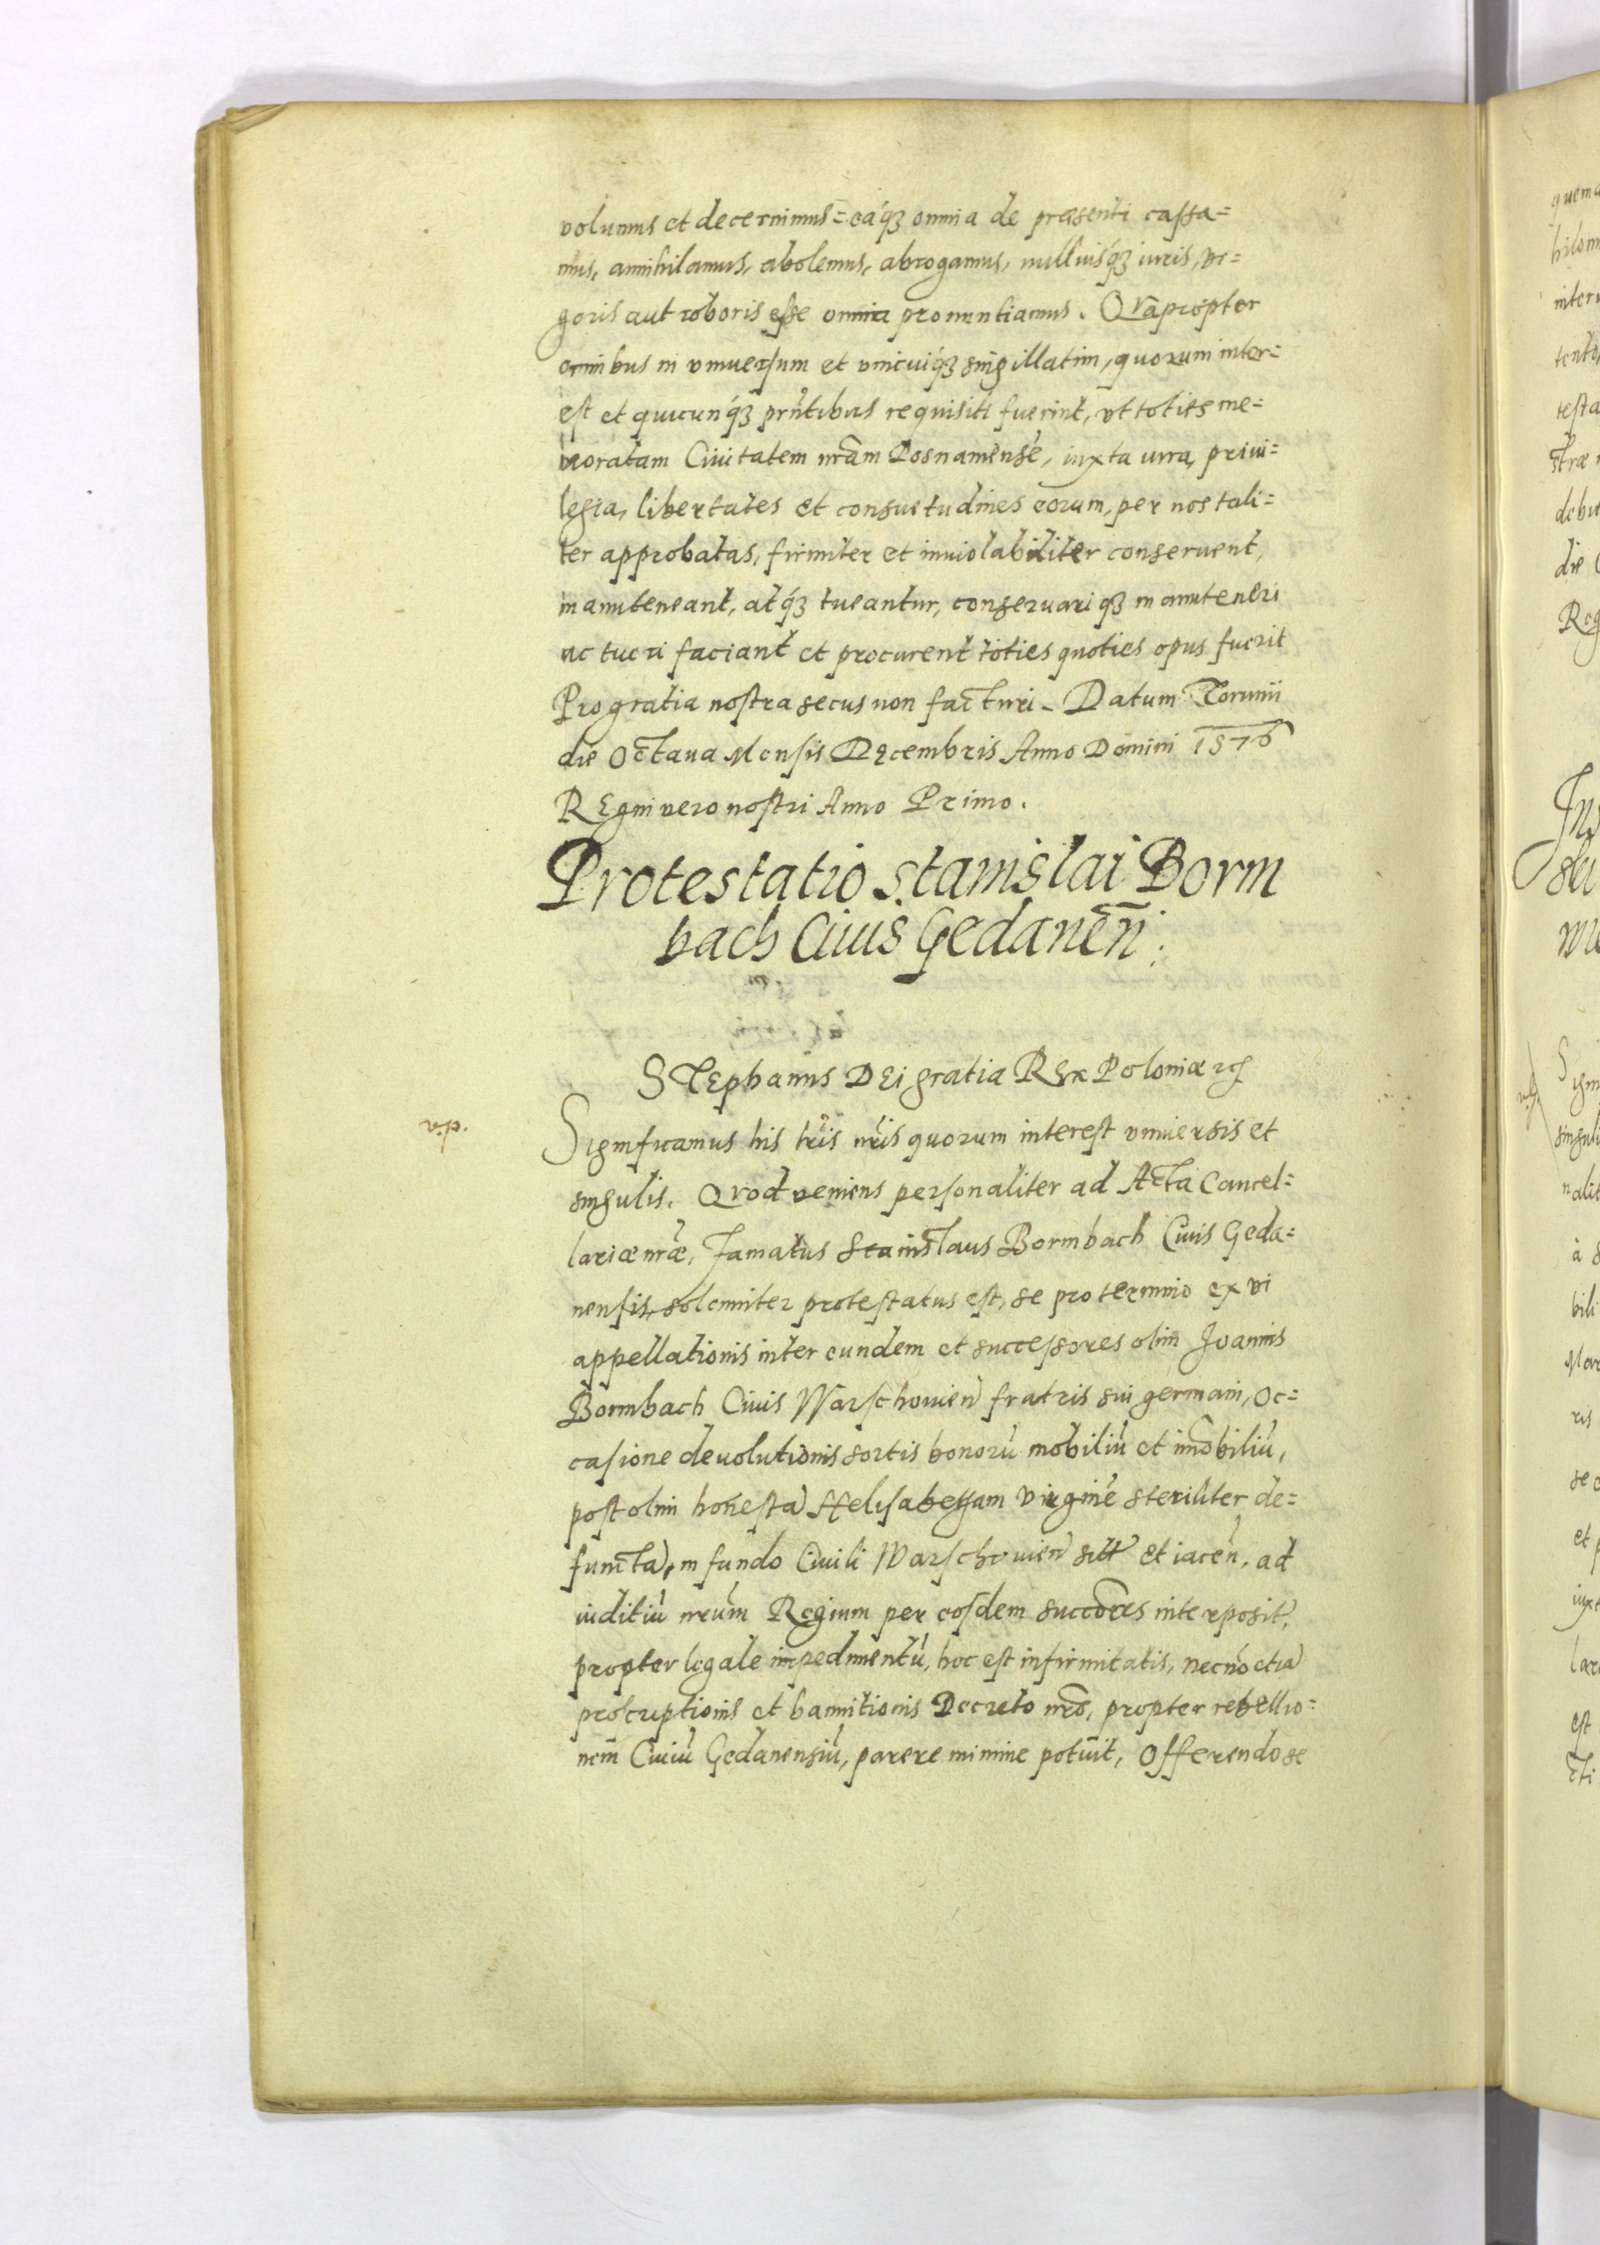 volumus et decernimus = eáq3 omnia de præsenti cassa=
mus, annihilamus, abolemus, abrogamus, nulliusq́3 iuris, vi=
goris aut roboris esse omnia pronuntiamus. Qvāpropter
omnibus in vniuersum et vnicuiq́3 singillatim, quorum inter=
est et quicunq́3 pr̃ntibus requisiti fuerint, vt toties me=
moratam Ciuitatem nr̃am Posnamensē, iuxta iura, priui=
legia, libertates et consuetudines eorum, per nos tali=
ter approbatas, firmiter et inuiolabiliter conseruent,
manuteneant, atq́3 tueantur, conseruariq3 manuteneri
ac tueri faciant et procurent toties quoties opus fuerit
Pro gratia nostra secus non facturi _ Datum Torunii
die Octaua Mensis Decembris Anno Domini 1576
REgni vero nostri Anno Primo.
Protestatio Stanislai Borm
bach Ciuis Gedaneñ:
STEphanus DEi gratia REx Poloniæ
Significamus his lr̃is nr̃is quorum interest vniuersis et
singulis. Qvod veniens personaliter ad Acta Cancel=
lariæ nr̃æ, Famatus Stanislaus Bormbach Ciuis Geda=
nensis, solemniter protestatus est, se pro termino ex vi
appellationis inter eundem et successores olim Joannis
Bormbach Ciuis Warschouień fratris sui germani, oc=
casione deuolutionis sortis bonorū mobiliū et im̃obiliū,
post olim honestā Helisabetham virginē steriliter de=
functā, in fundo Ciuili Warschouień sitt et iaceñ, ad
iuditiū nr̃um Regium per eosdem succ̃ores interposit,
propter legale impedimentū, hoc est infirmitatis, necnō etiā
proscriptionis et bannitionis Decreto nr̃o, propter rebellio=
nem Ciuiū Gedanensiū, parere minime potuit, Offerendo se